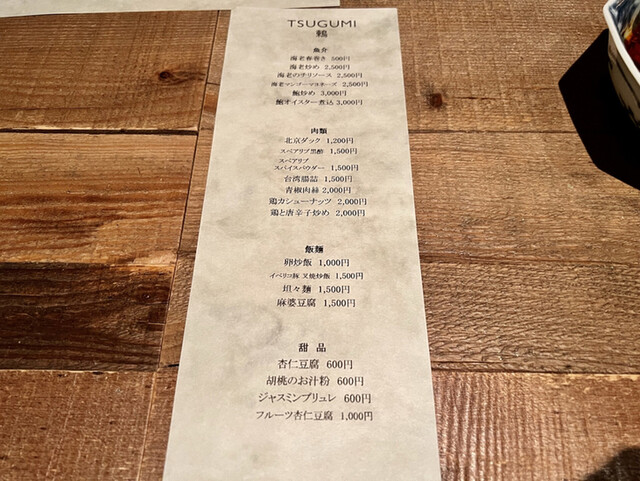 TSUGUMI
鶫
魚介
海老春巻き 500円
海老炒め 2,500円
海老のチリソース 2,500円
海老マンゴーマヨネーズ 2,500円
鮑炒め 3,000円
鮑オイスター煮込 3,000円
肉類
北京ダック 1,200円
スペアリブ黒酢 1,500円
スペアリブ
スパイスパウダー 1,500円
台湾腸詰 1,500円
青椒肉絲 2,000円
鶏カシューナッツ 2,000円
鶏と唐辛子炒め 2,000円
飯麺
卵炒飯 1,000円
イベリコ豚 叉焼炒飯 1,500円
坦々麺 1,500円
麻婆豆腐 1,500円
甜品
杏仁豆腐 600円
胡桃のお汁粉 600円
ジャスミンブリュレ 600円
フルーツ杏仁豆腐 1,000円